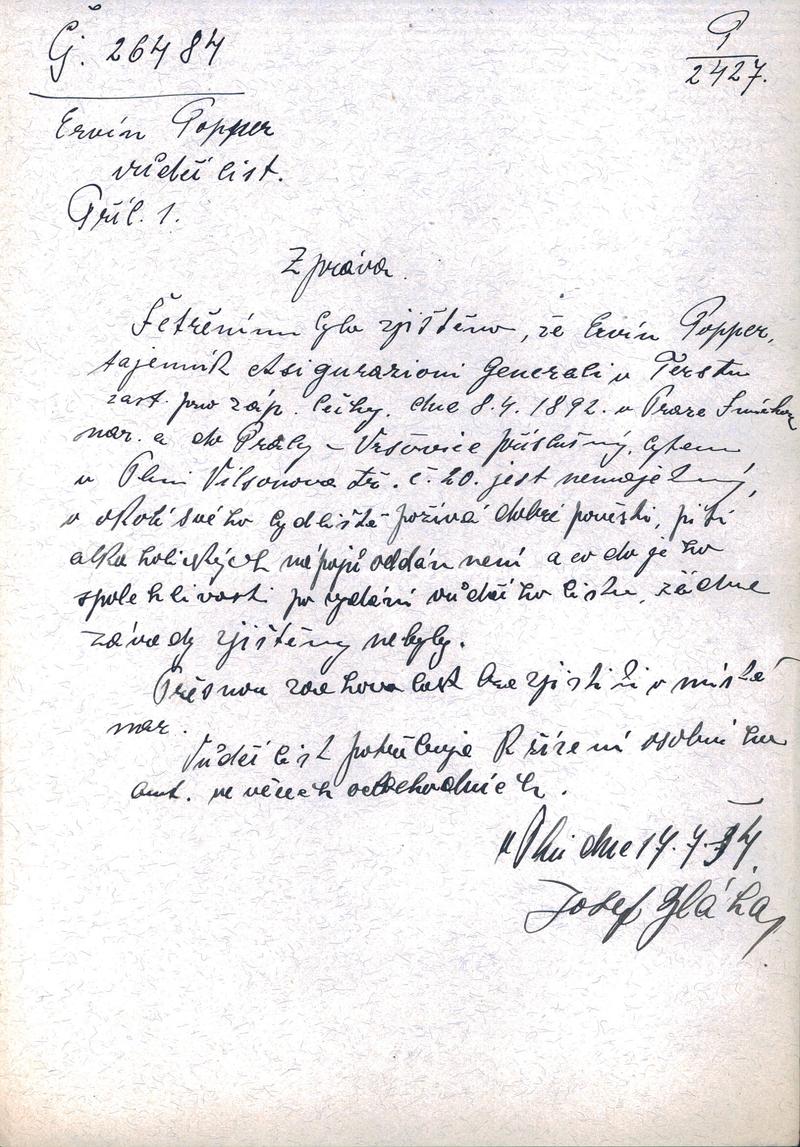 Čj. 26484
P
2427.
Ervín Popper
vůdčí list.
Příl. 1.
Zpráva.
Šetřením bylo zjištěno, že Ervín Popper,
tajemník Asigurazioni Generali v Terstu
zast. pro záp. Čechy. dne 8.4. 1892. v Praze Smíchov
nar. a do Prahy – Vršovice příslušný, bytem
v Plzni Vilsonova tř. č. 20. jest nemajetný,
v okolí svého bydliště požívá dobré pověsti, pití
alkoholických nápojů oddán není a co do jeho
spolehlivosti po vydání vůdčího listu, žádné
závady zjištěny nebyly.
Přesnou zachovalost lze zjistiti v místě
nar.
Vůdčí list potřebuje k řízení osobního
aut. ve věcech obchodních.
v Plzni dne 14.4.34.
Josef Bláha